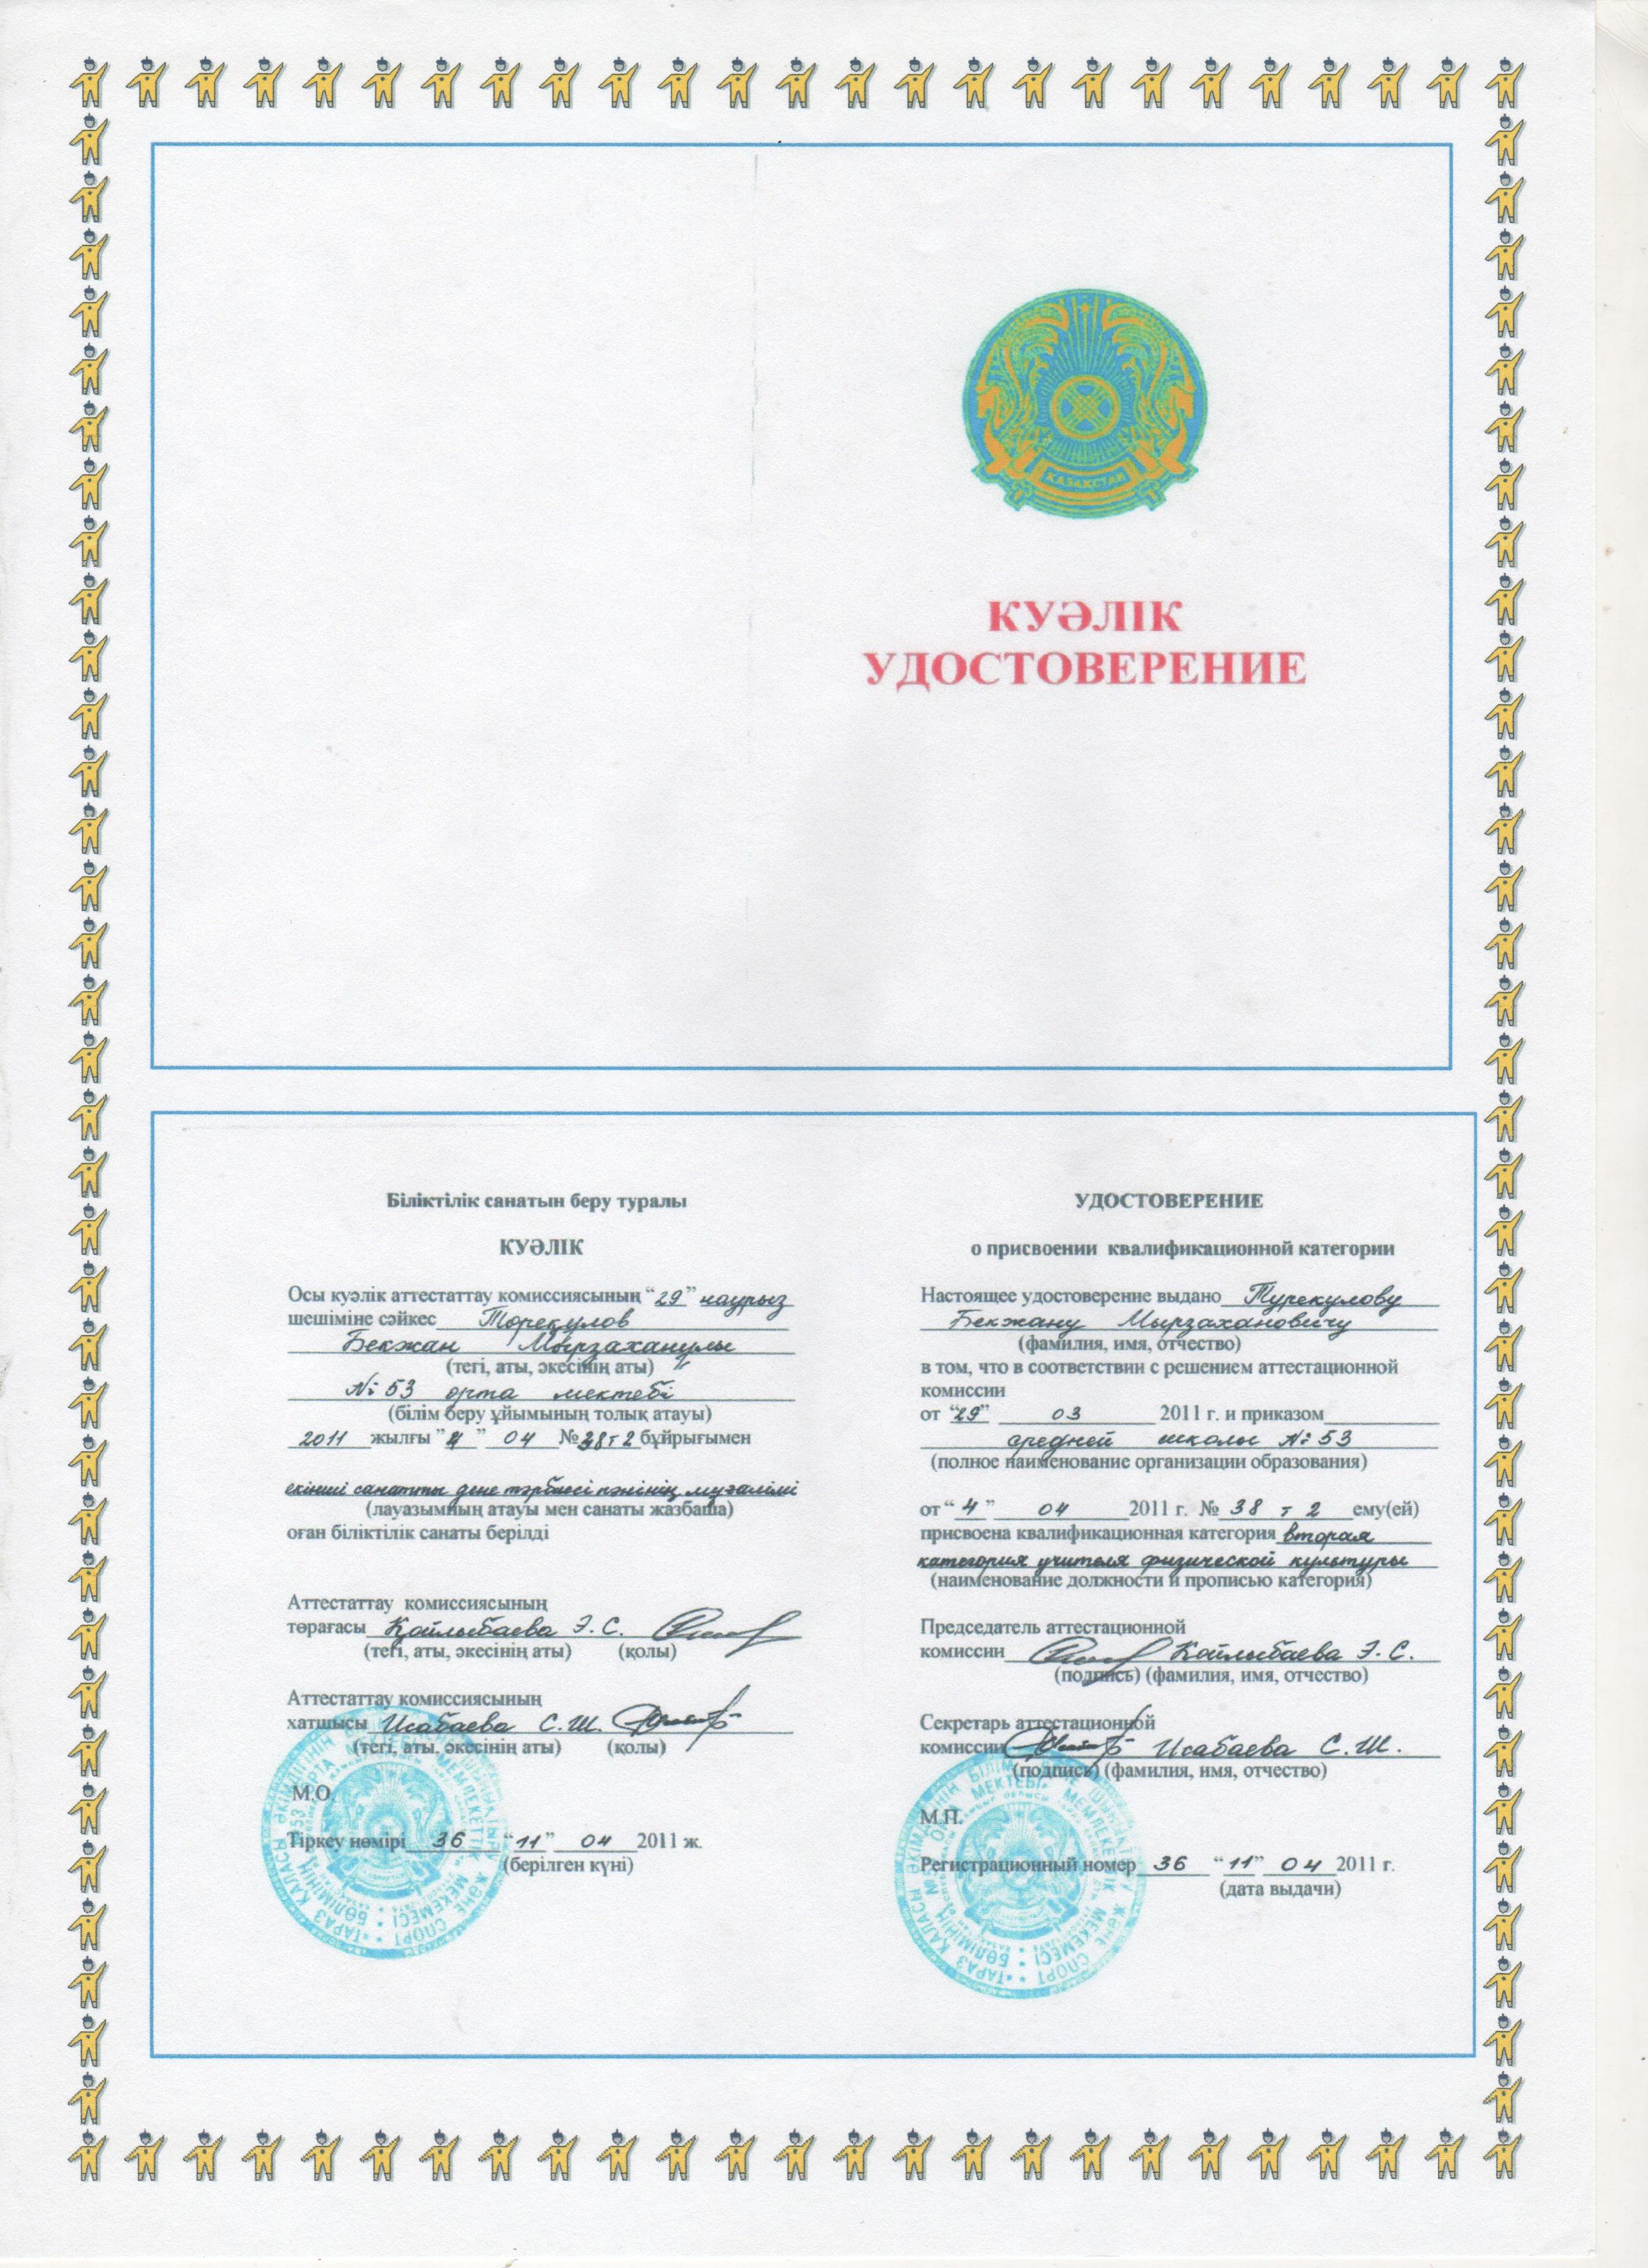 ҚАЗАҚСТАН
КУӘЛІК
УДОСТОВЕРЕНИЕ
Біліктілік санатын беру туралы
КУӘЛІК
Осы куәлік аттестаттау комиссиясының “29” наурыз
шешіміне сәйкес Төреқулов
Бекжан Мырзаханұлы
(тегі, аты, әкесінің аты)
№ 53 орта мектебі
(білім беру ұйымының толық атауы)
2011 жылғы ”4” 04 №38 т 2 бұйрығымен
екінші санатты дене тәрбиесі пәнінің мұғалімі
(лауазымның атауы мен санаты жазбаша)
оған біліктілік санаты берілді
Аттестаттау комиссиясының
төрағасы Қойлыбаева Э. С.
(тегі, аты, әкесінің аты) (қолы)
Аттестаттау комиссиясының
хатшысы Исабаева С. Ш.
(тегі, аты, әкесінің аты) (қолы)
М.О
Тіркеу нөмірі 36 “11” 04 2011 ж.
(берілген күні)
УДОСТОВЕРЕНИЕ
о присвоении квалификационной категории
Настоящее удостоверение выдано Турекулову
Бекжану Мырзахановичу
(фамилия, имя, отчество)
в том, что в соответствии с решением аттестационной
комиссии
от “29” 03 2011 г. и приказом
средней школы № 53
(полное наименование организации образования)
от “4” 04 2011 г. № 38 т 2 ему(ей)
присвоена квалификационная категория вторая
категория учителя физической культуры
(наименование должности и прописью категория)
Председатель аттестационной
комиссии Койлыбаева Э. С.
(подпись) (фамилия, имя, отчество)
Секретарь аттестационной
комиссии Исабаева С. Ш.
(подпись) (фамилия, имя, отчество)
М.П.
Регистрационный номер 36 “11” 04 2011 г.
(дата выдачи)